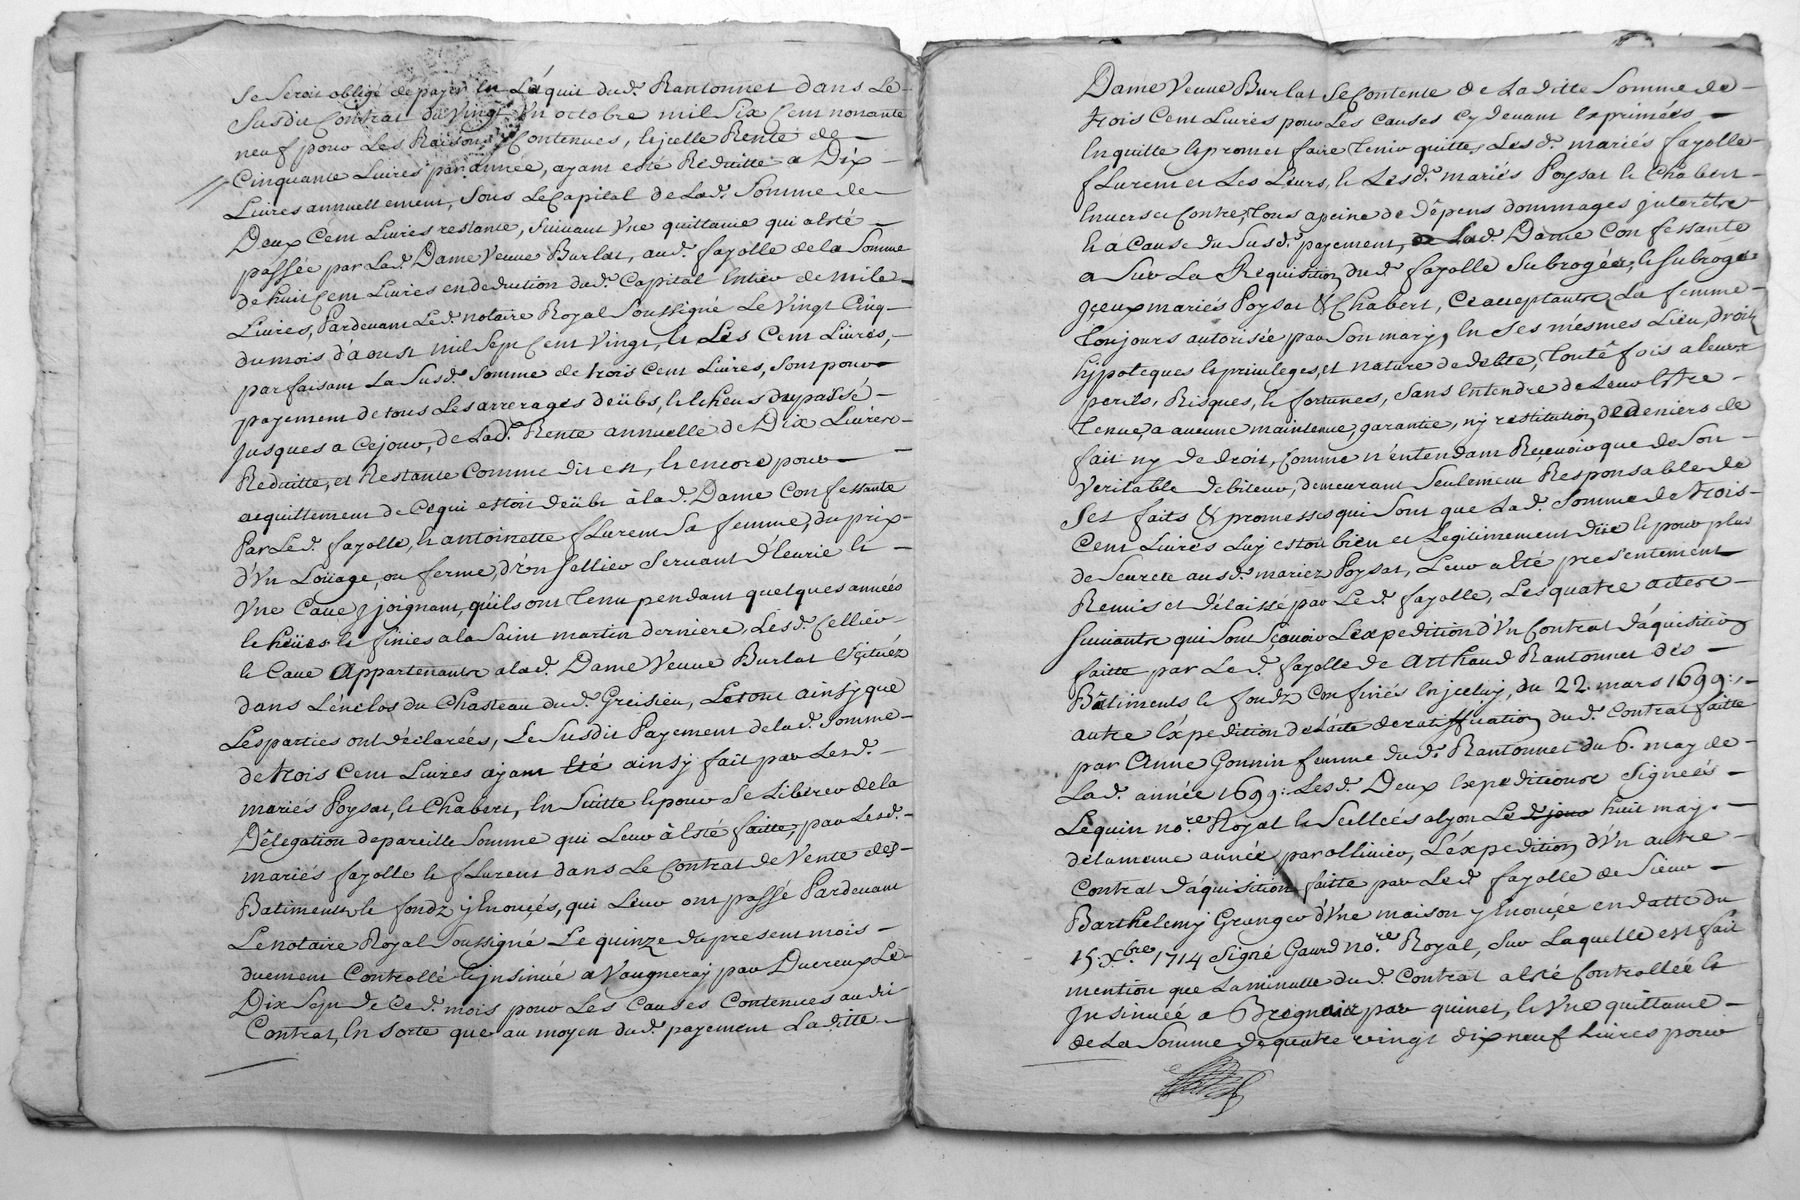 Se Seroit obligé de payer en L'aquit dud. Rantonnet dans Le
Susdit Contrat du Vingt Un octobre mil Six Cent nonante
neuf pour Les Raisons y Contenues, Icelle Rente de
Cinquante Livres par année, ayant esté Réduitte a Dix
Livres annuellement, Sous Le Capital de Lad. Somme de
Deux Cent Livres restante, Suivant Une quittance qui a esté
passée par Lad. Dame Veuve Burlat, aud. fayolle de la Somme
de huit Cent Livres en deduction dud. Capital Entier de mile
Livres, Pardevant Led. notaire Royal Soussigné Le Vingt Cinq
du mois d'aoust mil Sept Cent Vingt, et Les Cent Livres,
parfaisant La Susd. Somme de trois Cent Livres, Sont pour
payement de tous Les arrerages deübs, et echeus du passé
Jusques a Ce jour, de Lad. Rente annuelle de Dix Livres
Reduitte, et Restante Comme dit est, et encore pour
acquittement de Ce qui estoit deübt à la d. Dame Confessante
Par Led. fayolle, et antoinette fLurent Sa femme, du prix
d'Un Loüage, ou ferme, d'Un Sellier Servant d'Ecurie et
Une Cave y joignant, qu'ils ont tenu pendant quelques années
echeües et finies a la Saint martin derniere, Lesd. Cellier
et Cave Appartenants a lad. Dame Veuve Burlat Scituéz
dans L'énclos du Chasteau dud. Greisieu, Le tout ainsy que
Les parties ont déclarées, Le Susdit Payement de lad. Somme
de trois Cent Livres ayant Eté ainsy fait par Lesd.
mariés Poysat, et Chabert, En Suitte et pour Se Libérer de la
Délegation de pareille Somme qui Leur à Esté faitte, par Lesd.
mariés fayolle et fLurent dans Le Contrat de Vente des
Batiments et fondz y Enoncés, qui Leur ont passé Pardevant
Le notaire Royal Soussigné Le quinze du present mois
duement Controllé et Insinué a Vaugneray par Ducreux Le
Dix Sept de Ce d. mois pour Les Causes Contenues audit
Contrat, En Sorte que au moyen dud. payement Laditte
Dame Veuve Burlat Se Contente de Laditte Somme de
trois Cent Livres pour Les Causes Cy devant Exprimées
En quitte et promet faire tenir quitte, Lesd. mariés fayolle
fLurent et Les Leurs, et Lesd. mariés Poysat et Chabert
Envers et Contre, tous a peine de Dépens dommages Interêtz
et à Cause du Susd. payement, Lad. Dame Confessante
a Sur La Réquisition dud. fayolle Subrogée, et Subroge
Iceux mariés Poysat & Chabert, Ce acceptants, La femme
toujours autorisée par Son mary, En Ses mésmes Lieu, droit,
hypoteques et privileges, et nature de debte, toute fois a leurs
perils, Risques, et fortunes, Sans Entendre de Leur Estre
tenue, a aucune maintenue, garantie, ny restitution de deniers de
fait ny de droit, Comme n'entendant Recevoir que de Son
Veritable debiteur, demeurant Seulement Responsable de
Ses faits & promesses qui Sont que Lad. Somme de trois
Cent Livres Luy estoit bien et Legitimement Düe et pour plus
de Seurete ausd. mariez Poysat, Leur a Eté presentement
Remis et délaissé par Led. fayolle, Les quatre actes
Suivants qui Sont Sçavoir L'expedition d'Un Contrat d'aquisition
faitte par Led. fayolle de Arthaud Rantonnet des
Bâtiments et fondz Confinés En jceluy, du 22. mars 1699:
autre L'expédition de L'acte de ratiffication dud. Contrat faitte
par Anne Gonnin femme dud. Rantonnet du 6. may de
Lad. année 1699: Lesd. Deux Expeditions Signeés
Lequin no.re Royal et Scelleés a lyon Le d. jour huit may
de la meme année par ollivier, L'éxpedition d'Un autre
Contrat d'áquisition faitte par Led. fayolle de Sieur
Barthelemy Granger d'Une maison y Enoncée en datte du
15. Xbre 1714 Signé Gaurd no.re Royal, Sur Laquelle est fait
mention que La minutte dud. Contrat a Esté Controlleé et
Insinuée a Brignais par quinet, et Une quittance
de La Somme de quatre vingt dix neuf Livres pour